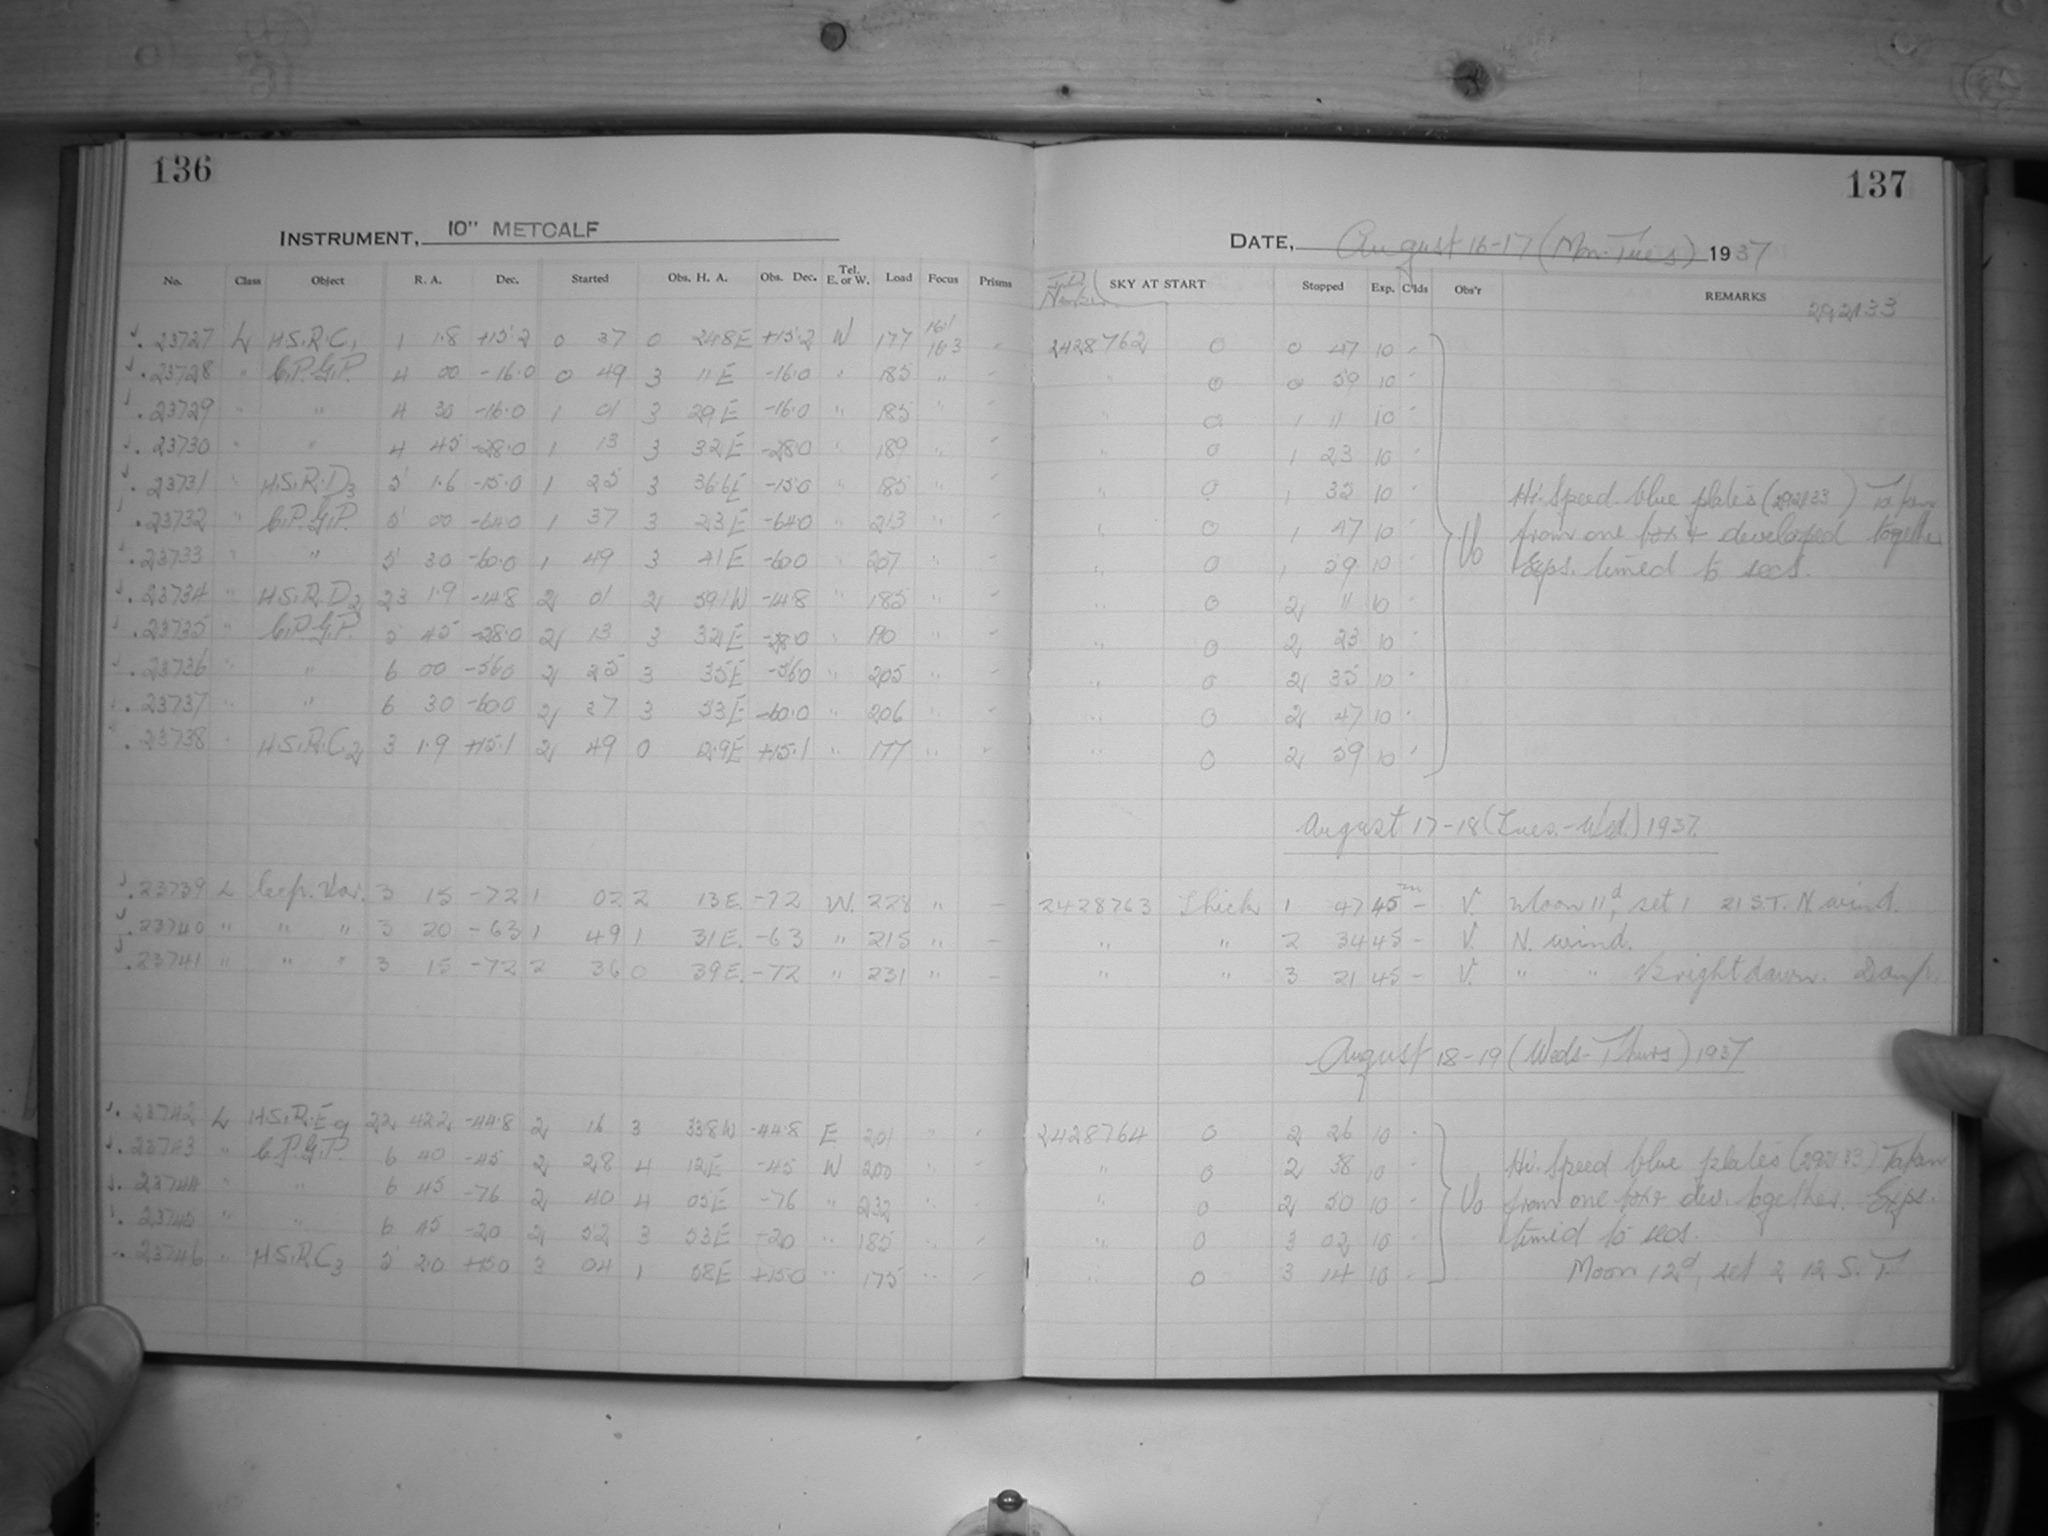 136
INSTRUMENT, 10" METCALF
No. Class Object R. A. Dec. Started Obs. H. A. Obs. Dec. Tel. E. or W. Load Focus Prisms
23727 L H.S.R.C1 1 1.8 +15.2 0 37 0 24.8E +15.2 W 177 16.1 16.3 "
23728 " C.P.G.P. 4 00 -16.0 0 49 3 11E -16.0 " 185 " "
23729 " " 4 30 -16.0 1 01 3 29E -16.0 " 185 " "
23730 " " 4 45 -28.0 1 13 3 32E -28.0 " 189 " "
23731 " H.S.R.D3 5 1.6 -15.0 1 25 3 36.6E -15.0 " 185 " "
23732 " C.P.G.P. 5 00 -64.0 1 37 3 23E -64.0 " 213 " "
23733 " " 5 30 -60.0 1 49 3 41E -60.0 " 207 " "
23734 " H.S.R.D2 23 1.9 -14.8 2 01 2 59.1W -14.8 " 185 " "
23735 " C.P.G.P. 5 45 -28.0 2 13 3 32E -28.0 " 190 " "
23736 " " 6 00 -56.0 2 25 3 35E -56.0 " 205 " "
23737 " " 6 30 -60.0 2 37 3 53E -60.0 " 206 " "
23738 " H.S.R.C2 3 1.9 +15.1 2 49 0 12.9E +15.1 " 177 " "
23739 L Cep. Var. 3 15 -72 1 02 2 13E. -72 W. 228 " -
23740 " " " 3 20 -63 1 49 1 31E. -63 " 215 " -
23741 " " " 3 15 -72 2 36 0 39E. -72 " 231 " -
23742 L H.S.R.E9 22 42.2 -44.8 2 16 3 33.8W -44.8 E 201 " "
23743 " C.P.G.P. 6 40 -45 2 28 4 12E -45 W 200 " "
23744 " " 6 45 -76 2 40 4 05E -76 " 232 " "
23745 " " 6 45 -20 2 52 3 53E -20 " 185 " "
23746 " H.S.R.C3 5 2.0 +15.0 3 04 1 58E +15.0 " 175 " "
137
DATE, August 16-17 (Mon-Tues) 1937
J.D. Number SKY AT START Stopped Exp. C'lds Obs'r REMARKS
292133
2428762 0 0 47 10 "
" 0 0 59 10 "
" 0 1 11 10 "
" 0 1 23 10 "
" 0 1 35 10 " Hi. Speed blue plates (292133) Taken
" 0 1 47 10 " Vo from one box & developed together
" 0 1 59 10 " Exps. timed to secs.
" 0 2 11 10 "
" 0 2 23 10 "
" 0 2 35 10 "
" 0 2 47 10 "
" 0 2 59 10 "
August 17-18 (Tues.-Wed.) 1937.
2428763 Thick 1 47 45m - V. Moon 11d, set 1 21 S.T. N. wind.
" " 2 34 45 - V. N. wind.
" " 3 21 45 - V. " " Bright dawn. Damp.
August 18-19 (Weds-Thurs) 1937
2428764 0 2 26 10 "
" 0 2 38 10 " Hi. Speed blue plates (292133) Taken
" 0 2 50 10 " Vo from one box & dev. together. Exps.
" 0 3 02 10 " timed to secs.
" 0 3 14 10 " Moon 12d, set 2 12 S.T.